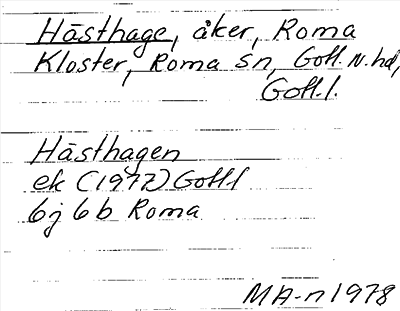 Hästhage, åker, Roma
Kloster, Roma sn, Gotl. N. hd,
Gotl. l.
Hästhagen
ek (1977) Gotl l
6j 6b Roma
MA-n 1978